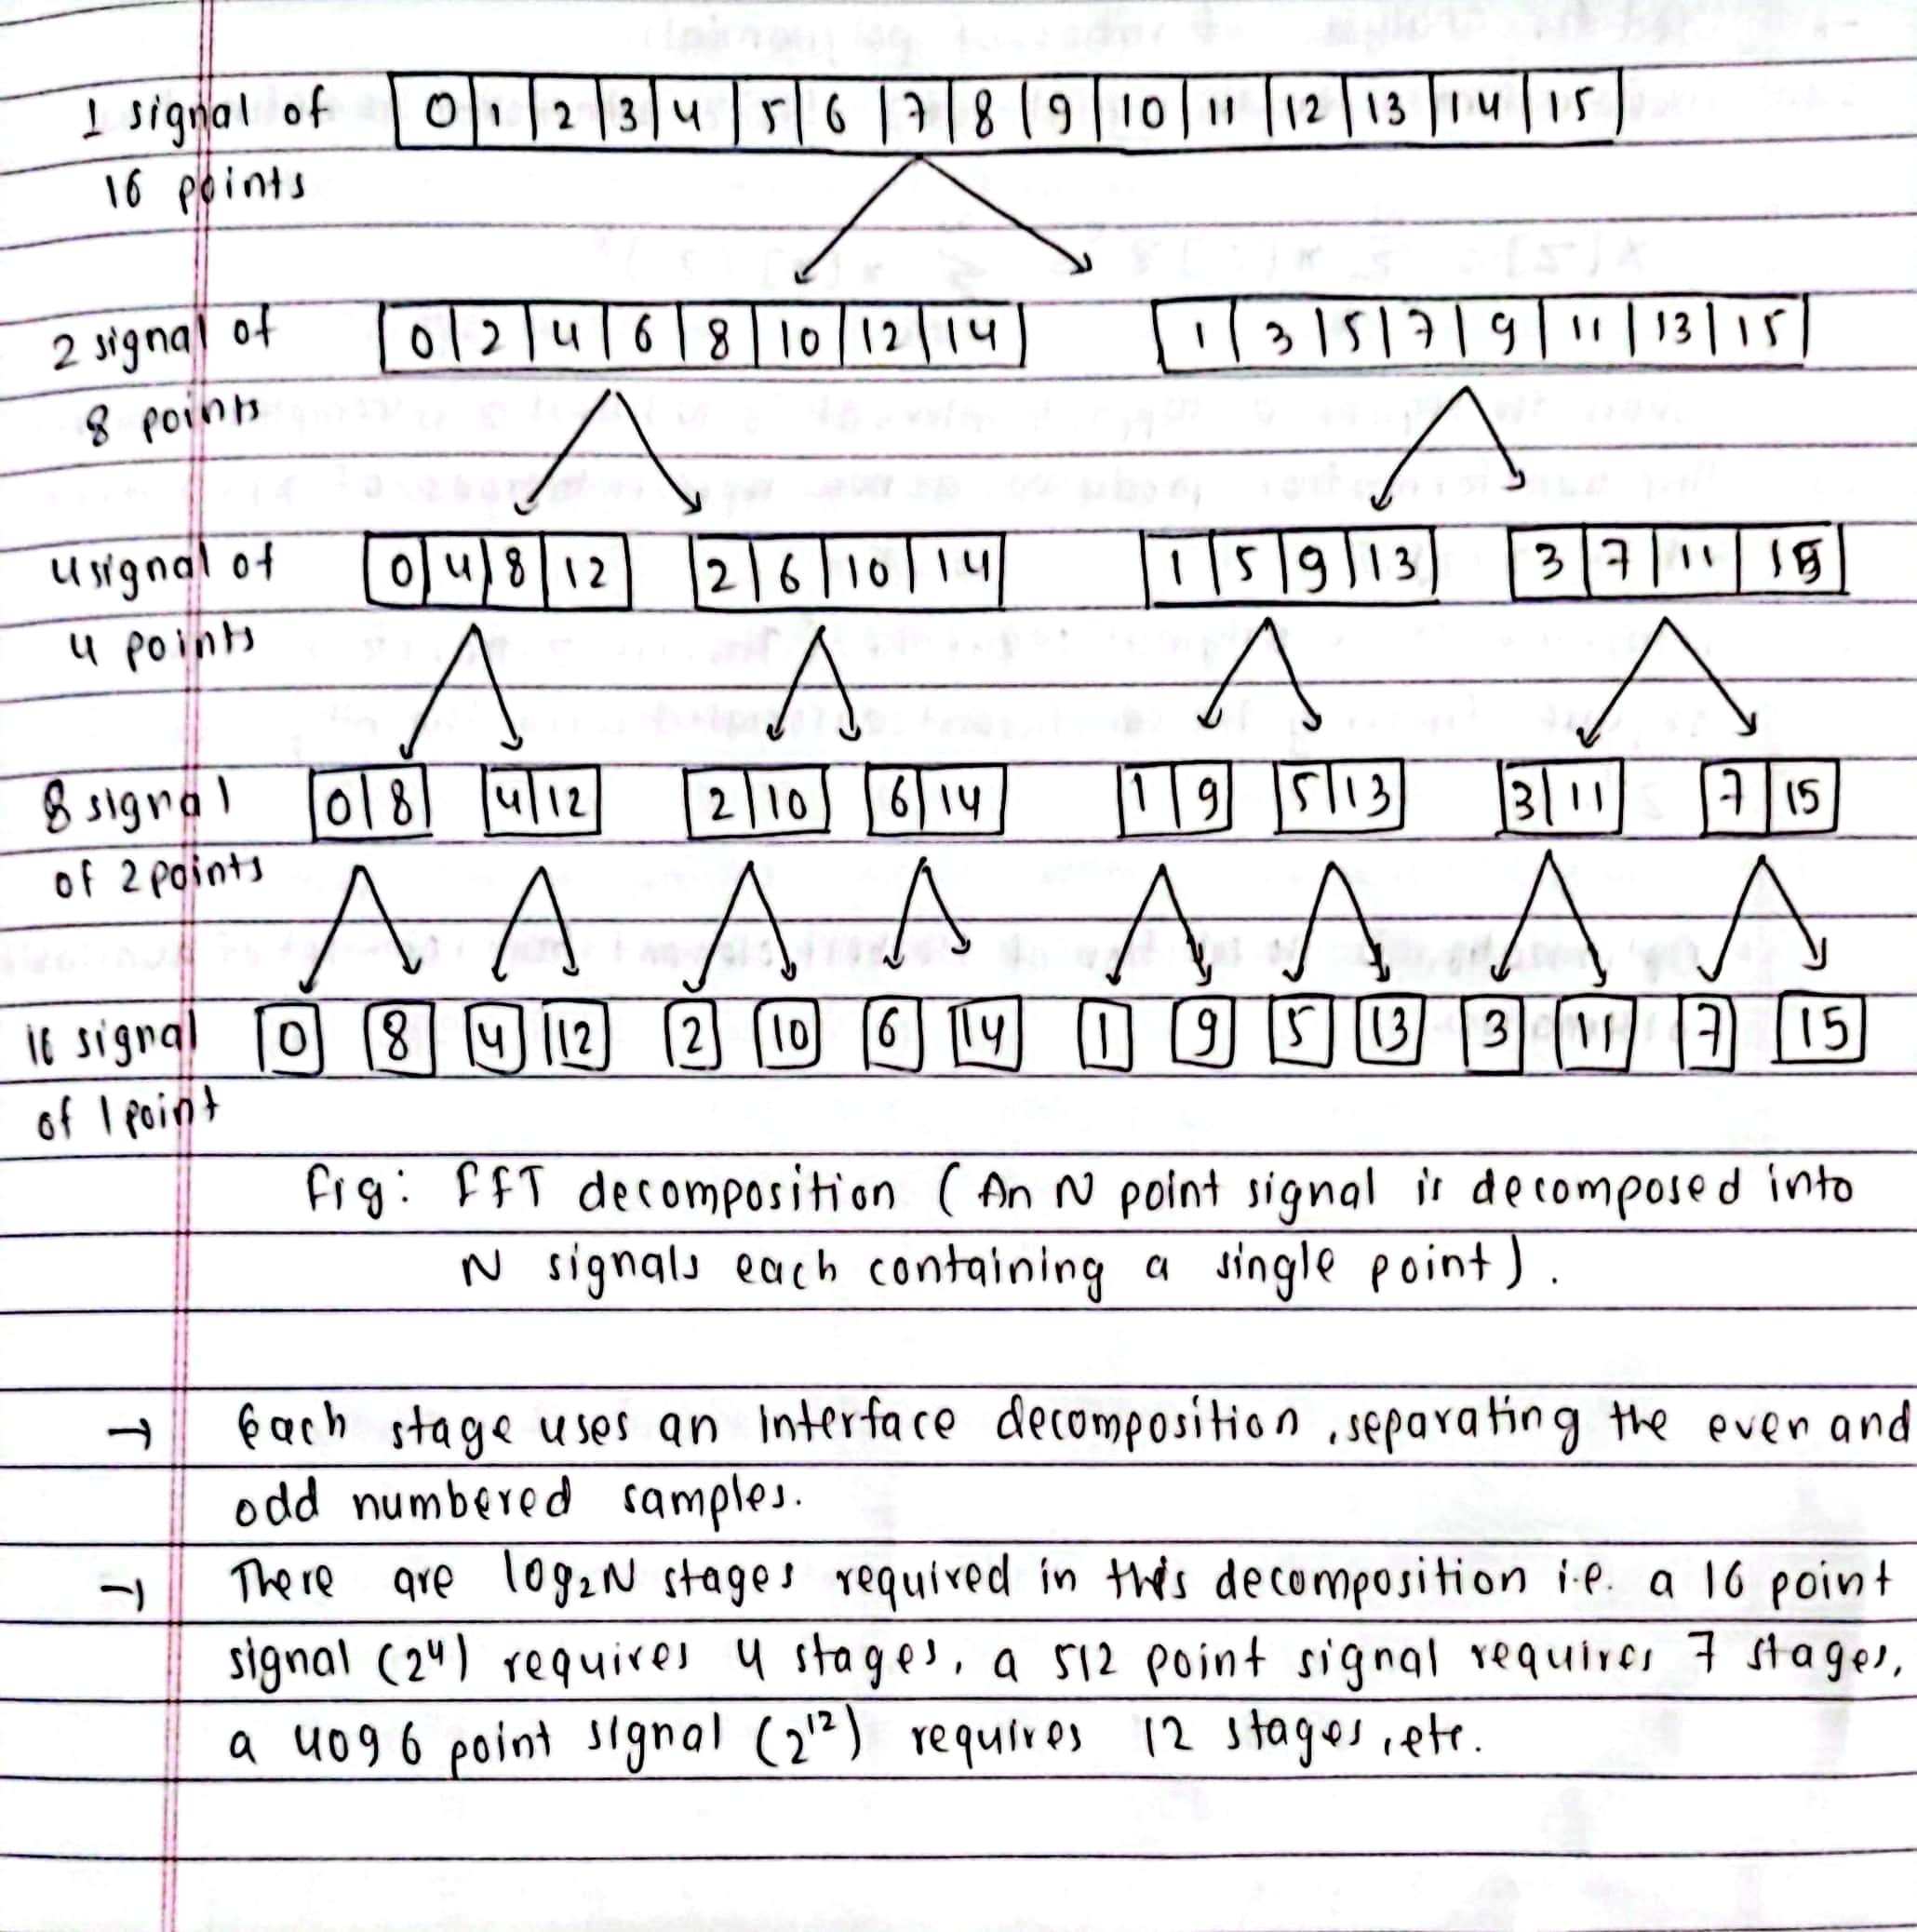 1 signal of 0 1 2 3 4 5 6 7 8 9 10 11 12 13 14 15
16 points
2 signal of 0 2 4 6 8 10 12 14 1 3 5 7 9 11 13 15
8 points
4 signal of 0 4 8 12 2 6 10 14 1 5 9 13 3 7 11 15
4 points
8 signal 0 8 4 12 2 10 6 14 1 9 5 13 3 11 7 15
of 2 points
16 signal 0 8 4 12 2 10 6 14 1 9 5 13 3 11 7 15
of 1 point
fig: FFT decomposition (An N point signal is decomposed into
N signals each containing a single point).
→ Each stage uses an interface decomposition, separating the even and
odd numbered samples.
→ There are log₂N stages required in this decomposition i.e. a 16 point
signal (2⁴) requires 4 stages, a 512 point signal requires 7 stages,
a 4096 point signal (2¹²) requires 12 stages, etc.